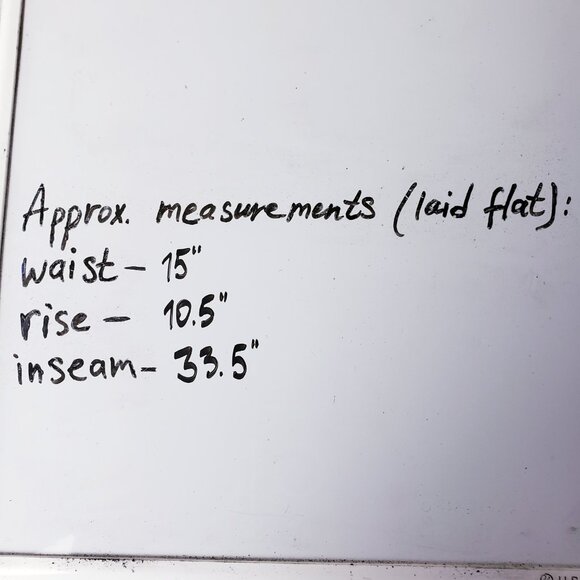 Approx. measurements (laid flat):
waist- 15"
rise - 10.5"
inseam- 33.5"